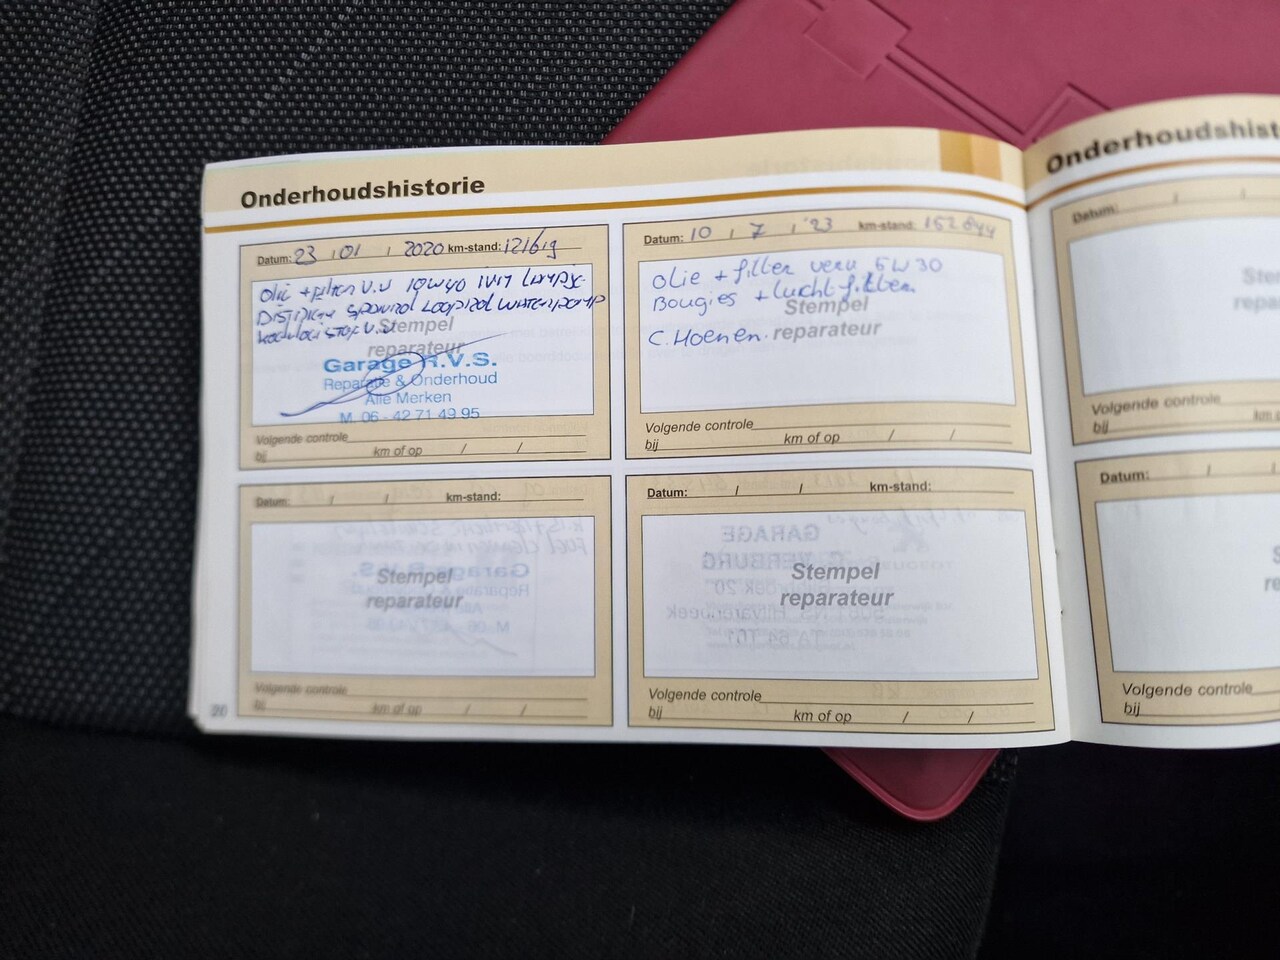 Onderhoudshistorie
Datum: 23 / 01 / 2020 km-stand: 121619
olie + filter v.v 10W40
DISTRIBUTIE SPANROL LOOPROL WATERPOMP
koelvloeistof v.v
Stempel
reparateur
Garage R.V.S.
Reparatie & Onderhoud
Alle Merken
M. 06 - 42 71 49 95
Volgende controle
bij km of op / /
Datum: 10 / 7 / '23 km-stand: 152844
olie + filter verv 5W30
Bougies + luchtfilter
Stempel
C. Hoenen. reparateur
Volgende controle
bij km of op / /
Datum: / / km-stand:
Stempel
reparateur
Volgende controle
bij km of op / /
Datum: / / km-stand:
Stempel
reparateur
Volgende controle
bij km of op / /
20
Onderhoudshist
Datum: / /
Ste
repa
Volgende controle
bij km
Datum: / /
S
re
Volgende controle
bij